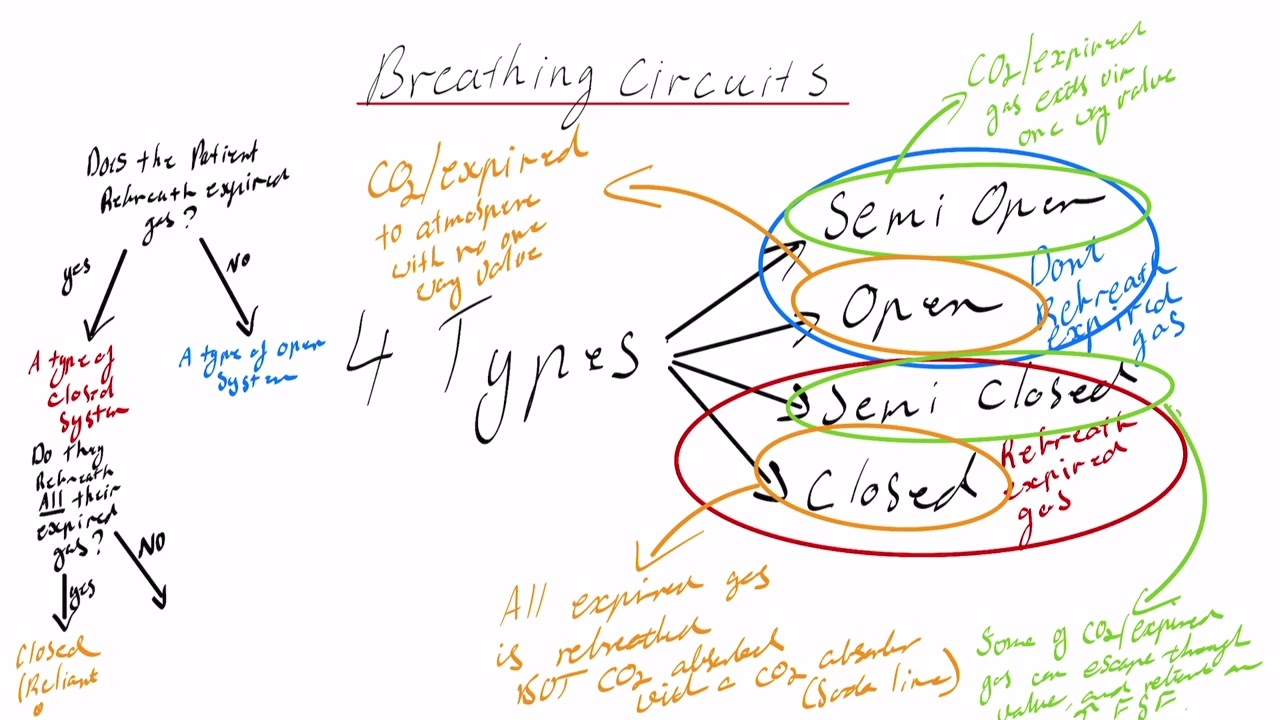 Breathing Circuits
CO2/expired
gas exits via
one way valve
Does the Patient
Rebreath expired
gas?
yes
NO
A type of
closed
system
A type of open
system
Do they
Rebreath
All their
expired
gas?
yes
NO
Closed
(Reliant
CO2/expired
to atmospere
with no one
way valve
4 Types
Semi Open
Open
Dont
Rebreath
expired
gas
Semi Closed
Closed
Rebreath
expired
gas
All expired gas
is rebreathed
CO2 absorbed
with a CO2 absorber
(Soda lime)
Some of CO2/expired
gas can escape through
valve, and reliant on
↑ FGF